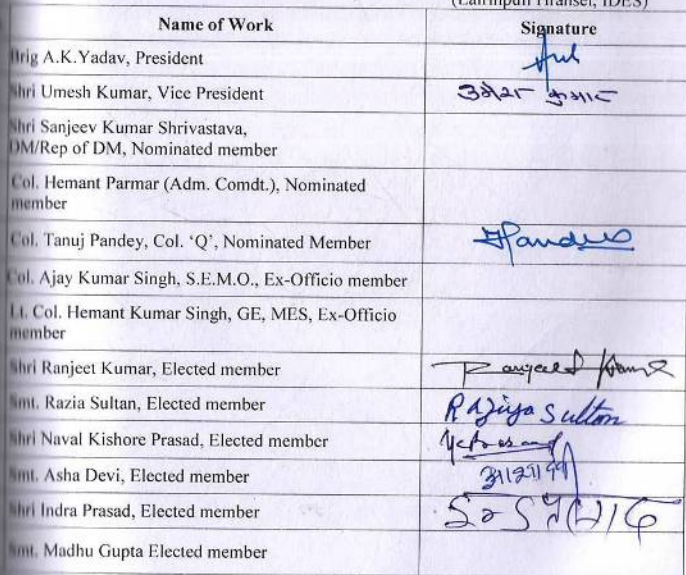 (Lalrinpuii Hransel, IDES)
Name of Work Signature
Brig A.K.Yadav, President
Shri Umesh Kumar, Vice President उमेश कुमार
Shri Sanjeev Kumar Shrivastava,
DM/Rep of DM, Nominated member
Col. Hemant Parmar (Adm. Comdt.), Nominated
member
Col. Tanuj Pandey, Col. ‘Q’, Nominated Member
Col. Ajay Kumar Singh, S.E.M.O., Ex-Officio member
Lt. Col. Hemant Kumar Singh, GE, MES, Ex-Officio
member
Shri Ranjeet Kumar, Elected member Ranjeet Kumar
Smt. Razia Sultan, Elected member Rajiya Sultan
Shri Naval Kishore Prasad, Elected member
Smt. Asha Devi, Elected member आशा देवी
Shri Indra Prasad, Elected member
Smt. Madhu Gupta Elected member